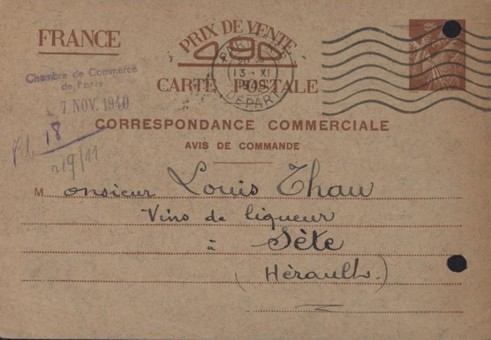 FRANCE
PRIX DE VENTE
0,90
CARTE POSTALE
PARIS
13 - XI
DEPART
Chambre de Commerce
de Paris
7 NOV. 1940
18
19/11
CORRESPONDANCE COMMERCIALE
AVIS DE COMMANDE
Monsieur Louis Thau
Vins de liqueur
à Sète
(Hérault.)